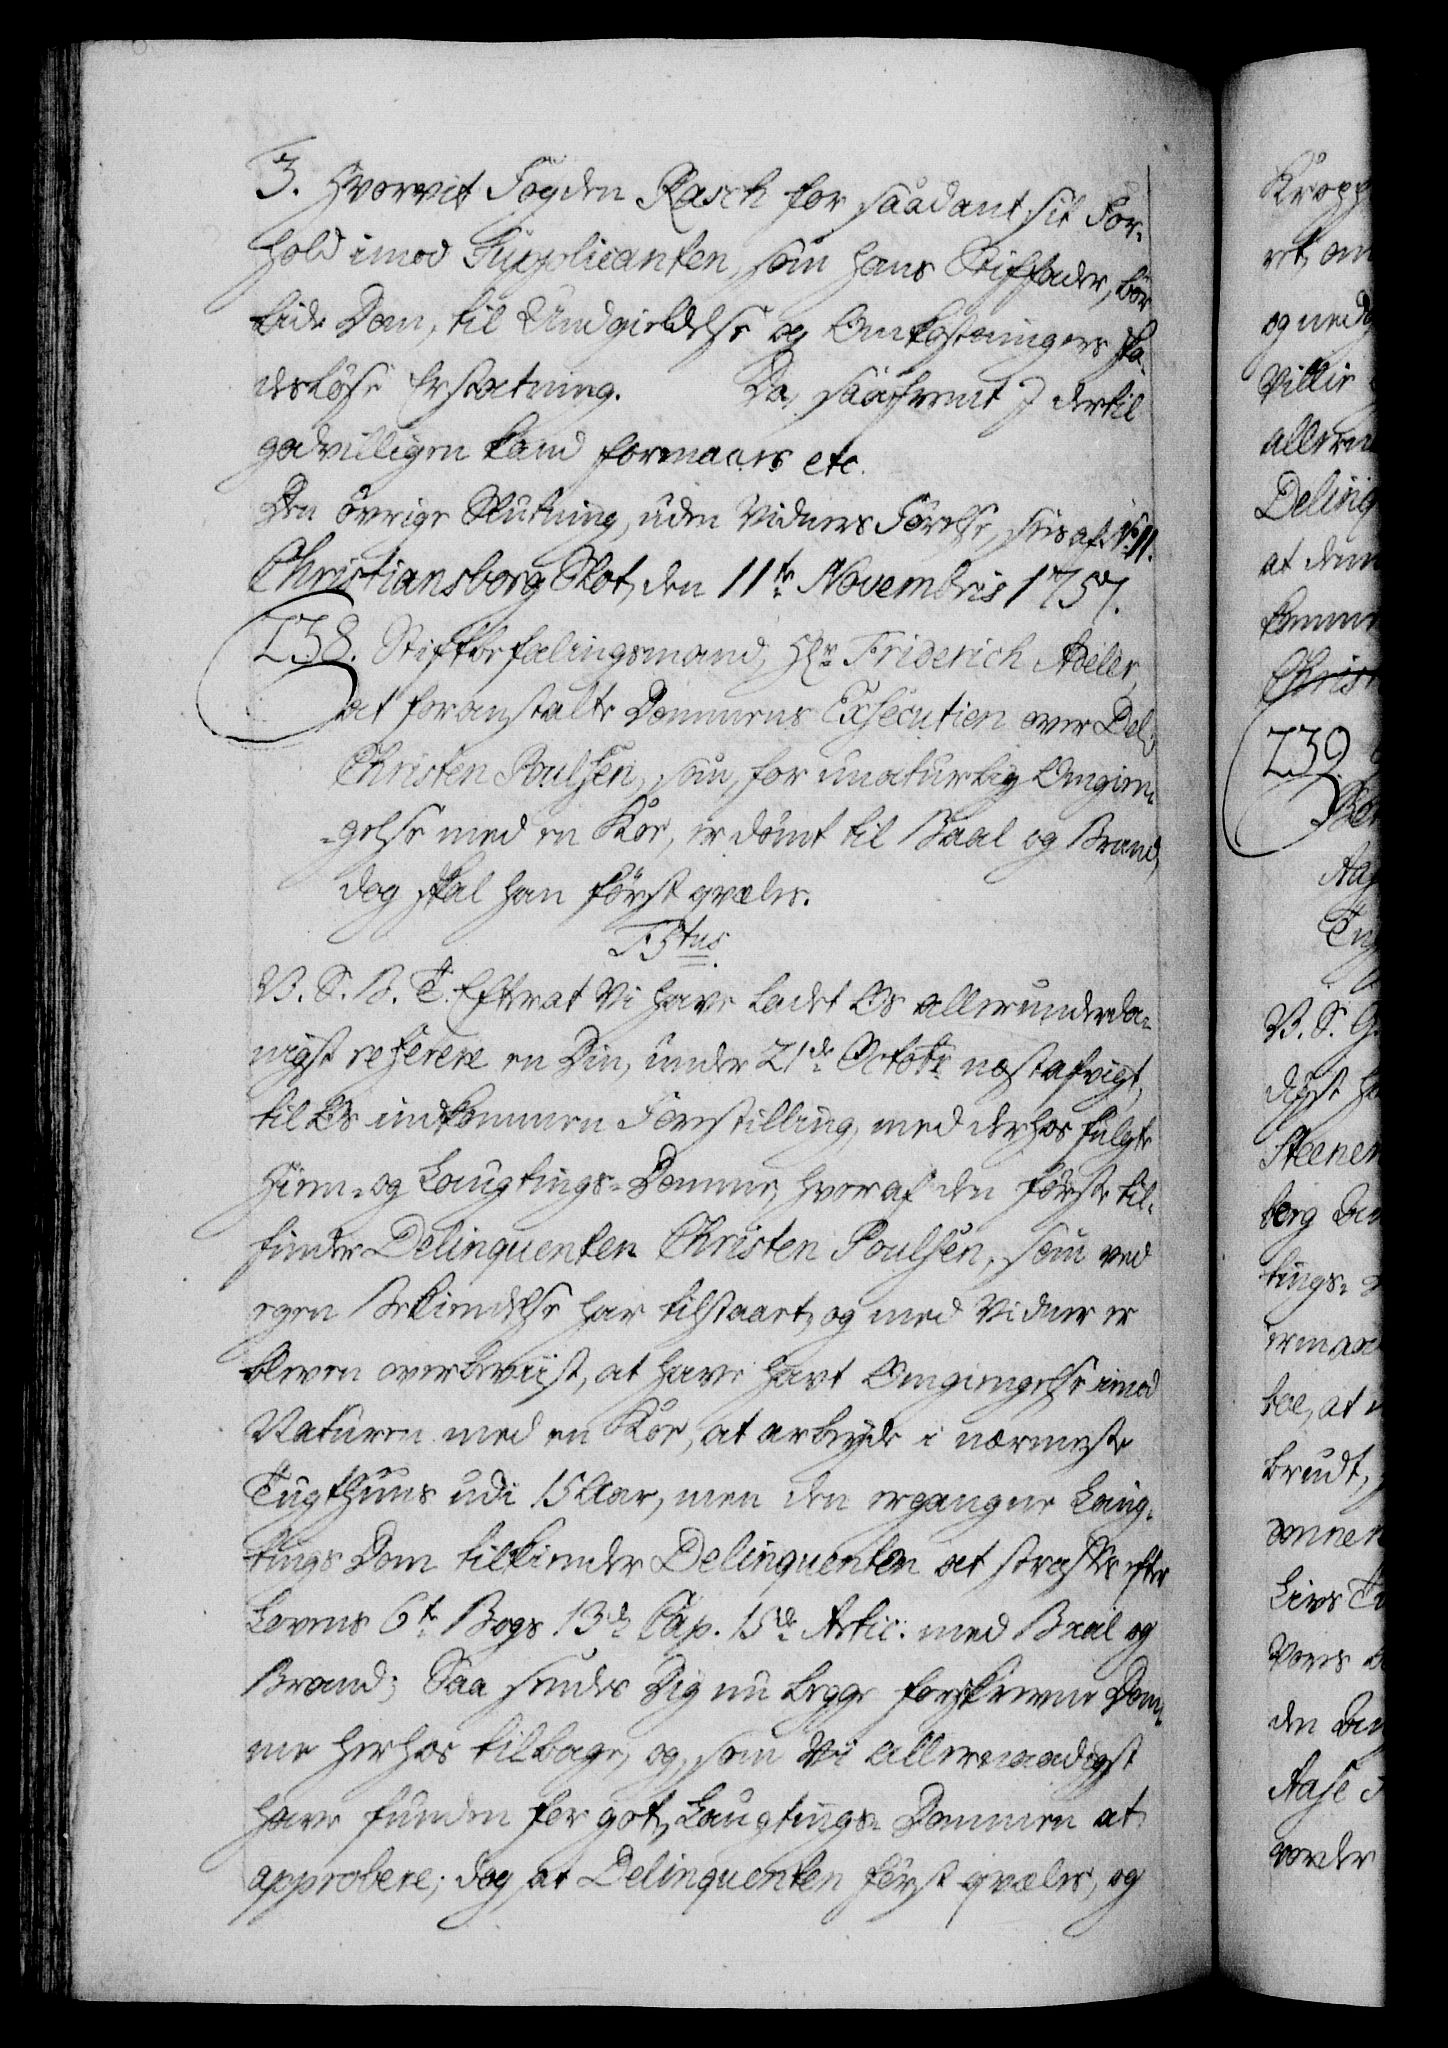 3. Hvorvit Fogden Rasch for saadant sit For-
hold imod Supplicanten, som hans Stiffader, bör
lide Dom, til Undgieldelse og Omkostningers ska-
deslöse Erstatning. Da, saafremt I dertil
godvilligen kand formaaes etc.
Den övrige Slutning, uden Vidners Förelse, sees af No 11.
Christiansborg Slot, den 11te Novembris 1757.
238. Stiftbefalingsmand, Hr Friderich Adeler,
at foranstalte Dommens Execution over Del:
Christen Poulsen, som, for unaturlig Omgien-
gelse med en Koe, er dömt til Baal og Brand,
dog skal han först qvæles.
F5tus.
V. S. B. T. Efterat Vi have ladet Os allerunderda-
nigst referere en Din, under 21de Octobr næstafvigt,
til Os indkommen Forestilling, med derhos fulgte
Hiem- og Laugtings-Domme, hvoraf den förste til-
finder Delinquenten Christen Poulsen, som ved
egen Bekiendelse har tilstaaet, og med Vidner er
bleven overbeviist, at have havt Omgiengelse imod
Naturen med en Koe, at arbeyde i nærmeste
Tugthuus udi 15 Aar, men den ergangne Laug-
tings Dom tilkiender Delinquenten at straffes efter
Lovens 6te Bogs 13de Cap. 15de Artic: med Baal og
Brand; Saa sendes Dig nu begge forskrevne Dom-
me herhos tilbage, og, som Vi allernaadigst
have funden for got, Laugtings-Dommen at
approbere; dog, at Delinquenten först qvæles, og
239.